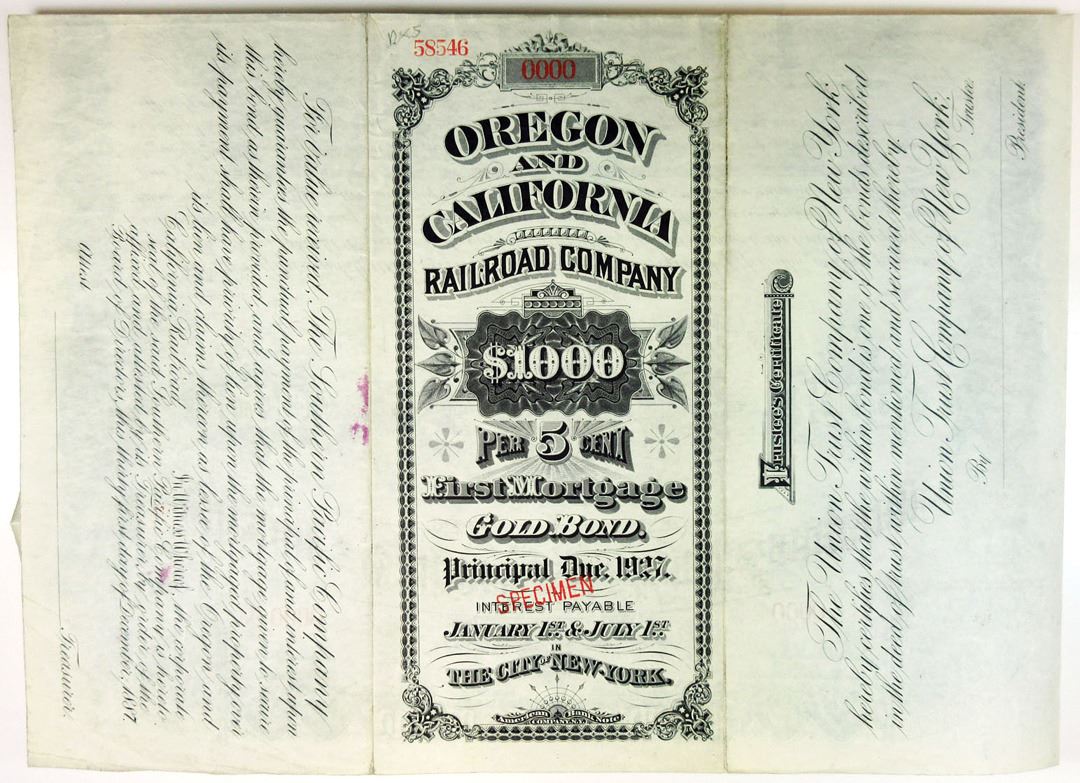 For Value received, The Southern Pacific Company
hereby guarantees the punctual payment of the principal of and interest upon
this bond, as therein promised, and agrees that the mortgage given to secure
its payment shall have priority of lien on the mortgaged property over
its liens and claims thereon as lessee of the Oregon and
California Railroad.
In Witness Whereof, the corporate
seal of the said Southern Pacific Company is hereto
affixed, and attested by its Treasurer, by order of the
Board of Directors, this thirty first day of December, 1887.
Attest
Treasurer.
58546
0000
OREGON
AND
CALIFORNIA
RAILROAD COMPANY
$1000
PER 5 CENT
First Mortgage
GOLD BOND.
Principal Due, 1927.
SPECIMEN
INTEREST PAYABLE
JANUARY 1ST & JULY 1ST
IN
THE CITY OF NEW-YORK.
American Bank Note
COMPANY, N.Y.
Trustee's Certificate
The Union Trust Company of New York
hereby certifies that the within bond is one of the bonds described
in the first mortgage within mentioned and secured thereby.
Union Trust Company of New York.
Trustee.
By
President.